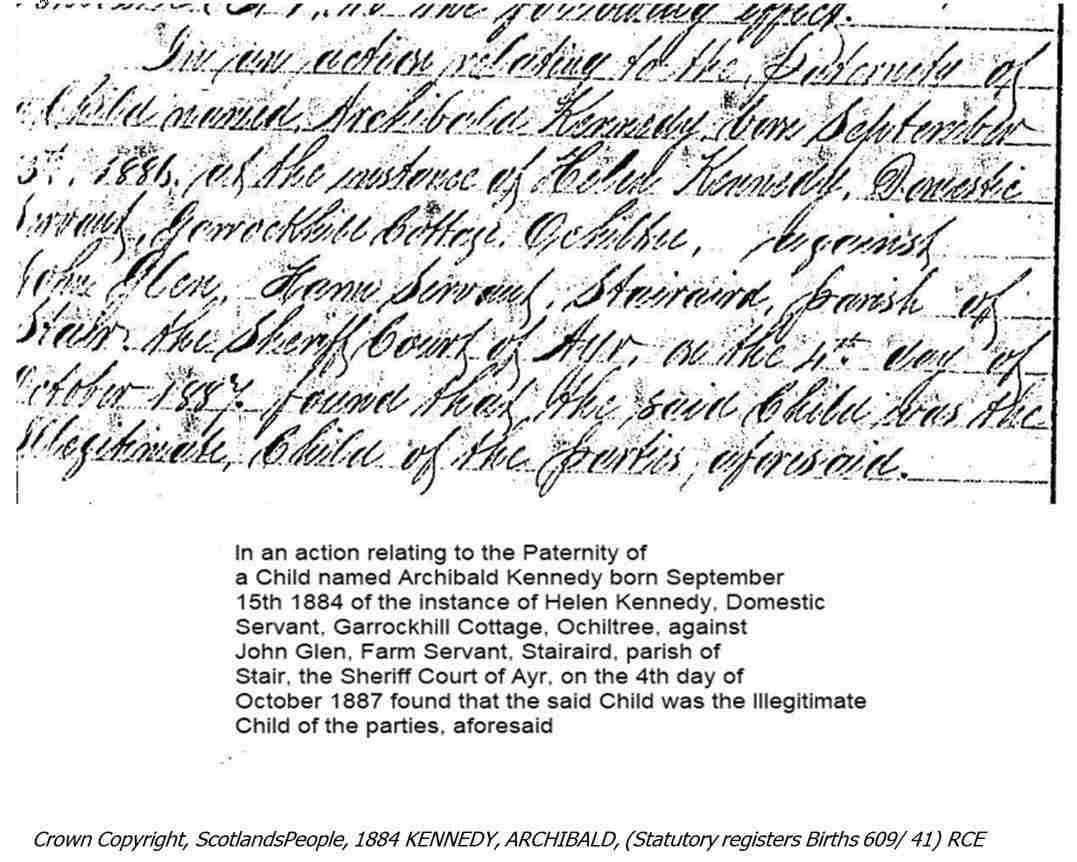 the following effect.
In an action relating to the paternity of
Child named Archibald Kennedy born September
1884, at the instance of Helen Kennedy, Domestic
Servant, Garrockhill Cottage, Ochiltree, against
John Glen, Farm Servant, Stairaird, parish of
Stair, the Sheriff Court of Ayr, on the 4th day of
October 1887 found that the said Child was the
Illegitimate Child of the parties, aforesaid.
In an action relating to the Paternity of
a Child named Archibald Kennedy born September
15th 1884 of the instance of Helen Kennedy, Domestic
Servant, Garrockhill Cottage, Ochiltree, against
John Glen, Farm Servant, Stairaird, parish of
Stair, the Sheriff Court of Ayr, on the 4th day of
October 1887 found that the said Child was the Illegitimate
Child of the parties, aforesaid
Crown Copyright, ScotlandsPeople, 1884 KENNEDY, ARCHIBALD, (Statutory registers Births 609/ 41) RCE